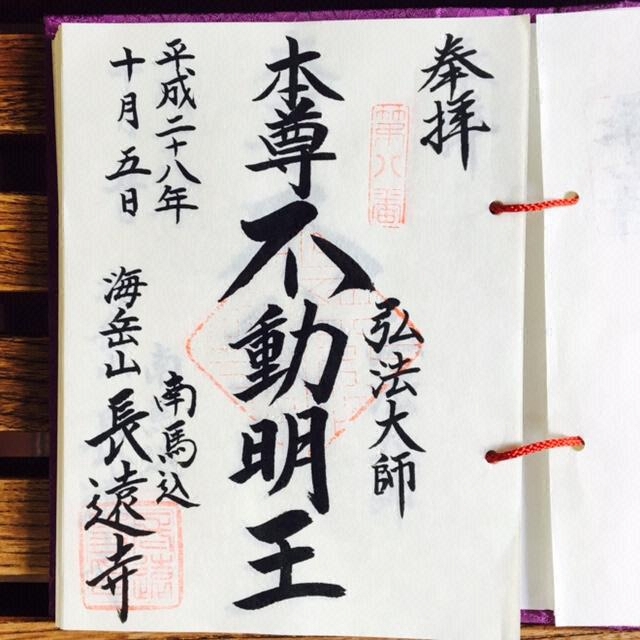 奉拝
第八番
弘法大師
本尊不動明王
平成二十八年
南馬込
十月五日
海岳山長遠寺